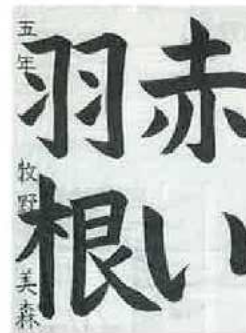 赤い
羽根
五年 牧野 美森